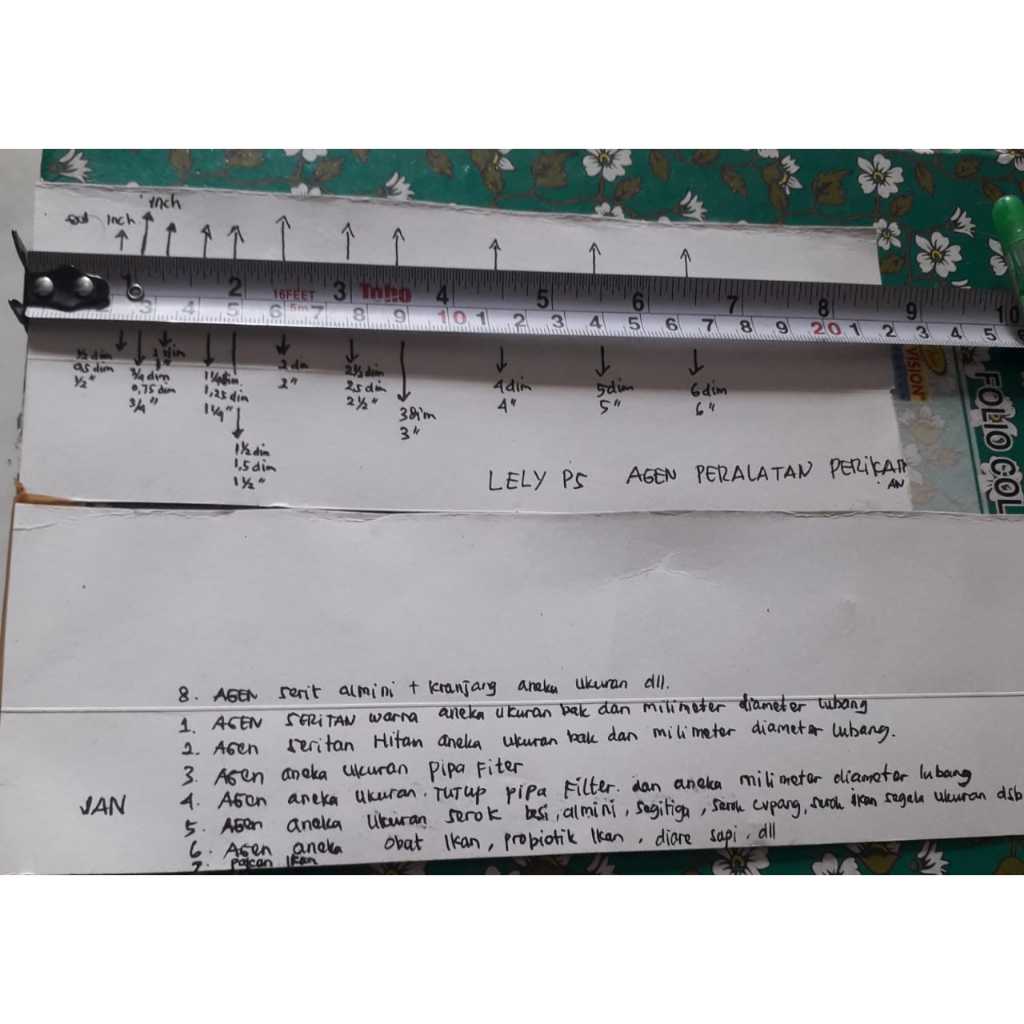 inch
inch
1 2 3 4 5 6 7 8 9 10
16FEET
5m
3 4 5 6 7 8 9 10 1 2 3 4 5 6 7 8 9 20 1 2 3 4 5
1/2 dim
0,5 dim
1/2 "
3/4 dim
0,75 dim
3/4 "
1 dim
1"
1 1/4 dim
1,25 dim
1 1/4 "
1 1/2 dim
1,5 dim
1 1/2 "
2 dim
2"
2 1/2 dim
2,5 dim
2 1/2 "
3 dim
3 "
4 dim
4"
5 dim
5"
6 dim
6"
VISION
FOLIO COL
LELY PS AGEN PERALATAN PERIKAN
AN
8. AGEN serit almini + kranjang aneka ukuran dll.
1. AGEN SERITAN warna aneka ukuran bak dan milimeter diameter lubang
2. AGen seritan Hitan aneka ukuran bak dan milimeter diameter lubang.
3. AGen aneka ukuran pipa Fiter
4. AGen aneka ukuran. Tutup pipa Filter. dan aneka milimeter diameter lubang
JAN
5. AGen aneka ukuran serok besi, almini, segitiga, serok cupang, serok ikan segala ukuran dsb
6. AGen aneka obat Ikan, probiotik Ikan, diare sapi, dll
7. pakan Ikan